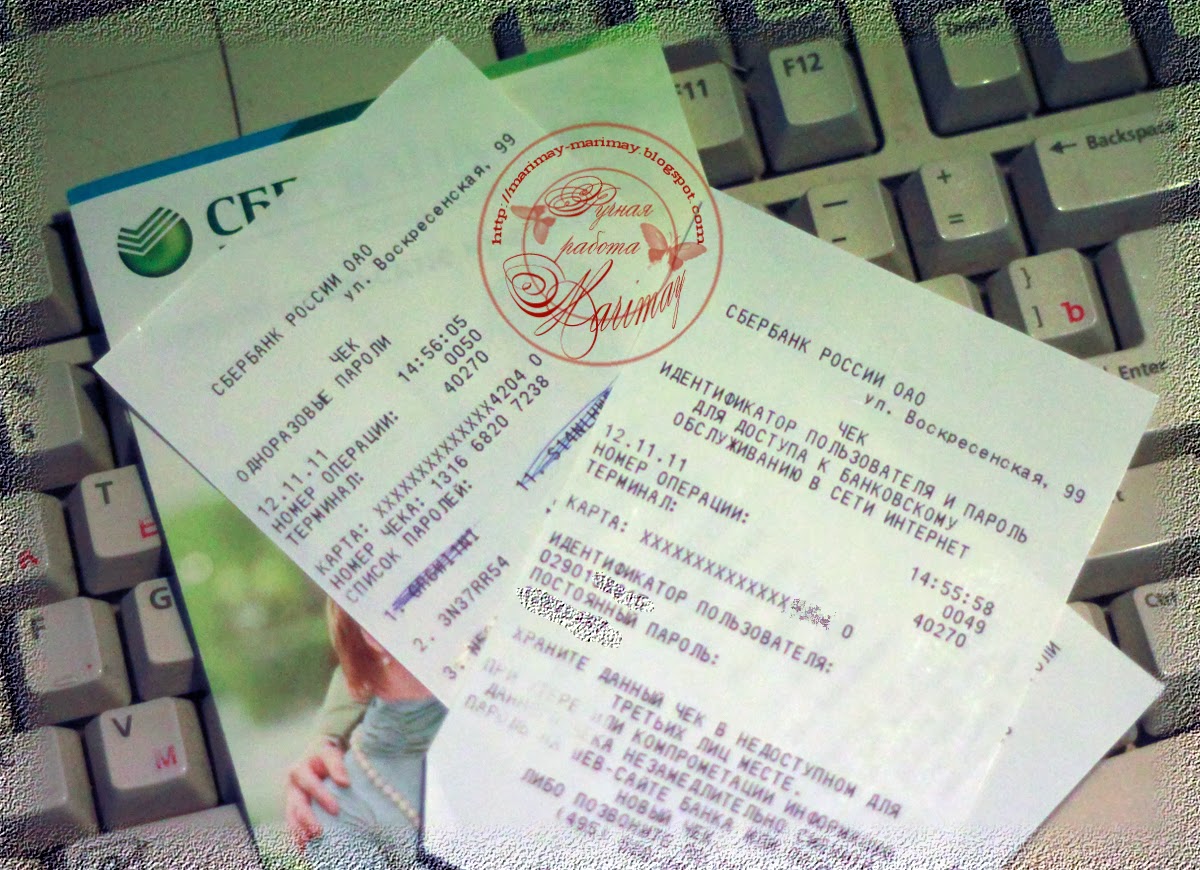 СБЕ
СБЕРБАНК РОССИИ ОАО
ул. Воскресенская, 99
ЧЕК
ОДНОРАЗОВЫЕ ПАРОЛИ
12.11.11 14:56:05
НОМЕР ОПЕРАЦИИ: 0050
ТЕРМИНАЛ: 40270
КАРТА: XXXXXXXXXXXXXX4204 0
НОМЕР ЧЕКА: 1316 6820 7238
СПИСОК ПАРОЛЕЙ:
1.
11.
2. 3N37RR54
3.
http://marimay-marimay.blogspot.com
Ручная
работа
Marimay
СБЕРБАНК РОССИИ ОАО
ул. Воскресенская, 99
ЧЕК
ИДЕНТИФИКАТОР ПОЛЬЗОВАТЕЛЯ И ПАРОЛЬ
ДЛЯ ДОСТУПА К БАНКОВСКОМУ
ОБСЛУЖИВАНИЮ В СЕТИ ИНТЕРНЕТ
12.11.11 14:55:58
НОМЕР ОПЕРАЦИИ: 0049
ТЕРМИНАЛ: 40270
КАРТА: XXXXXXXXXXXXXX 0
ИДЕНТИФИКАТОР ПОЛЬЗОВАТЕЛЯ:
02901
ПОСТОЯННЫЙ ПАРОЛЬ:
ХРАНИТЕ ДАННЫЙ ЧЕК В НЕДОСТУПНОМ ДЛЯ
ТРЕТЬИХ ЛИЦ МЕСТЕ.
ПРИ ИЛИ КОМПРОМЕТАЦИИ
НЕЗАМЕДЛИТЕЛЬНО
WEB-САЙТЕ БАНКА
НОВЫЙ ЧЕК
ЛИБО ПОЗВОНИТЕ
(495)
F11
F12
+
=
Backspace
}
]
Ъ
Enter
T
Е
G
F
V
М
Ctrl